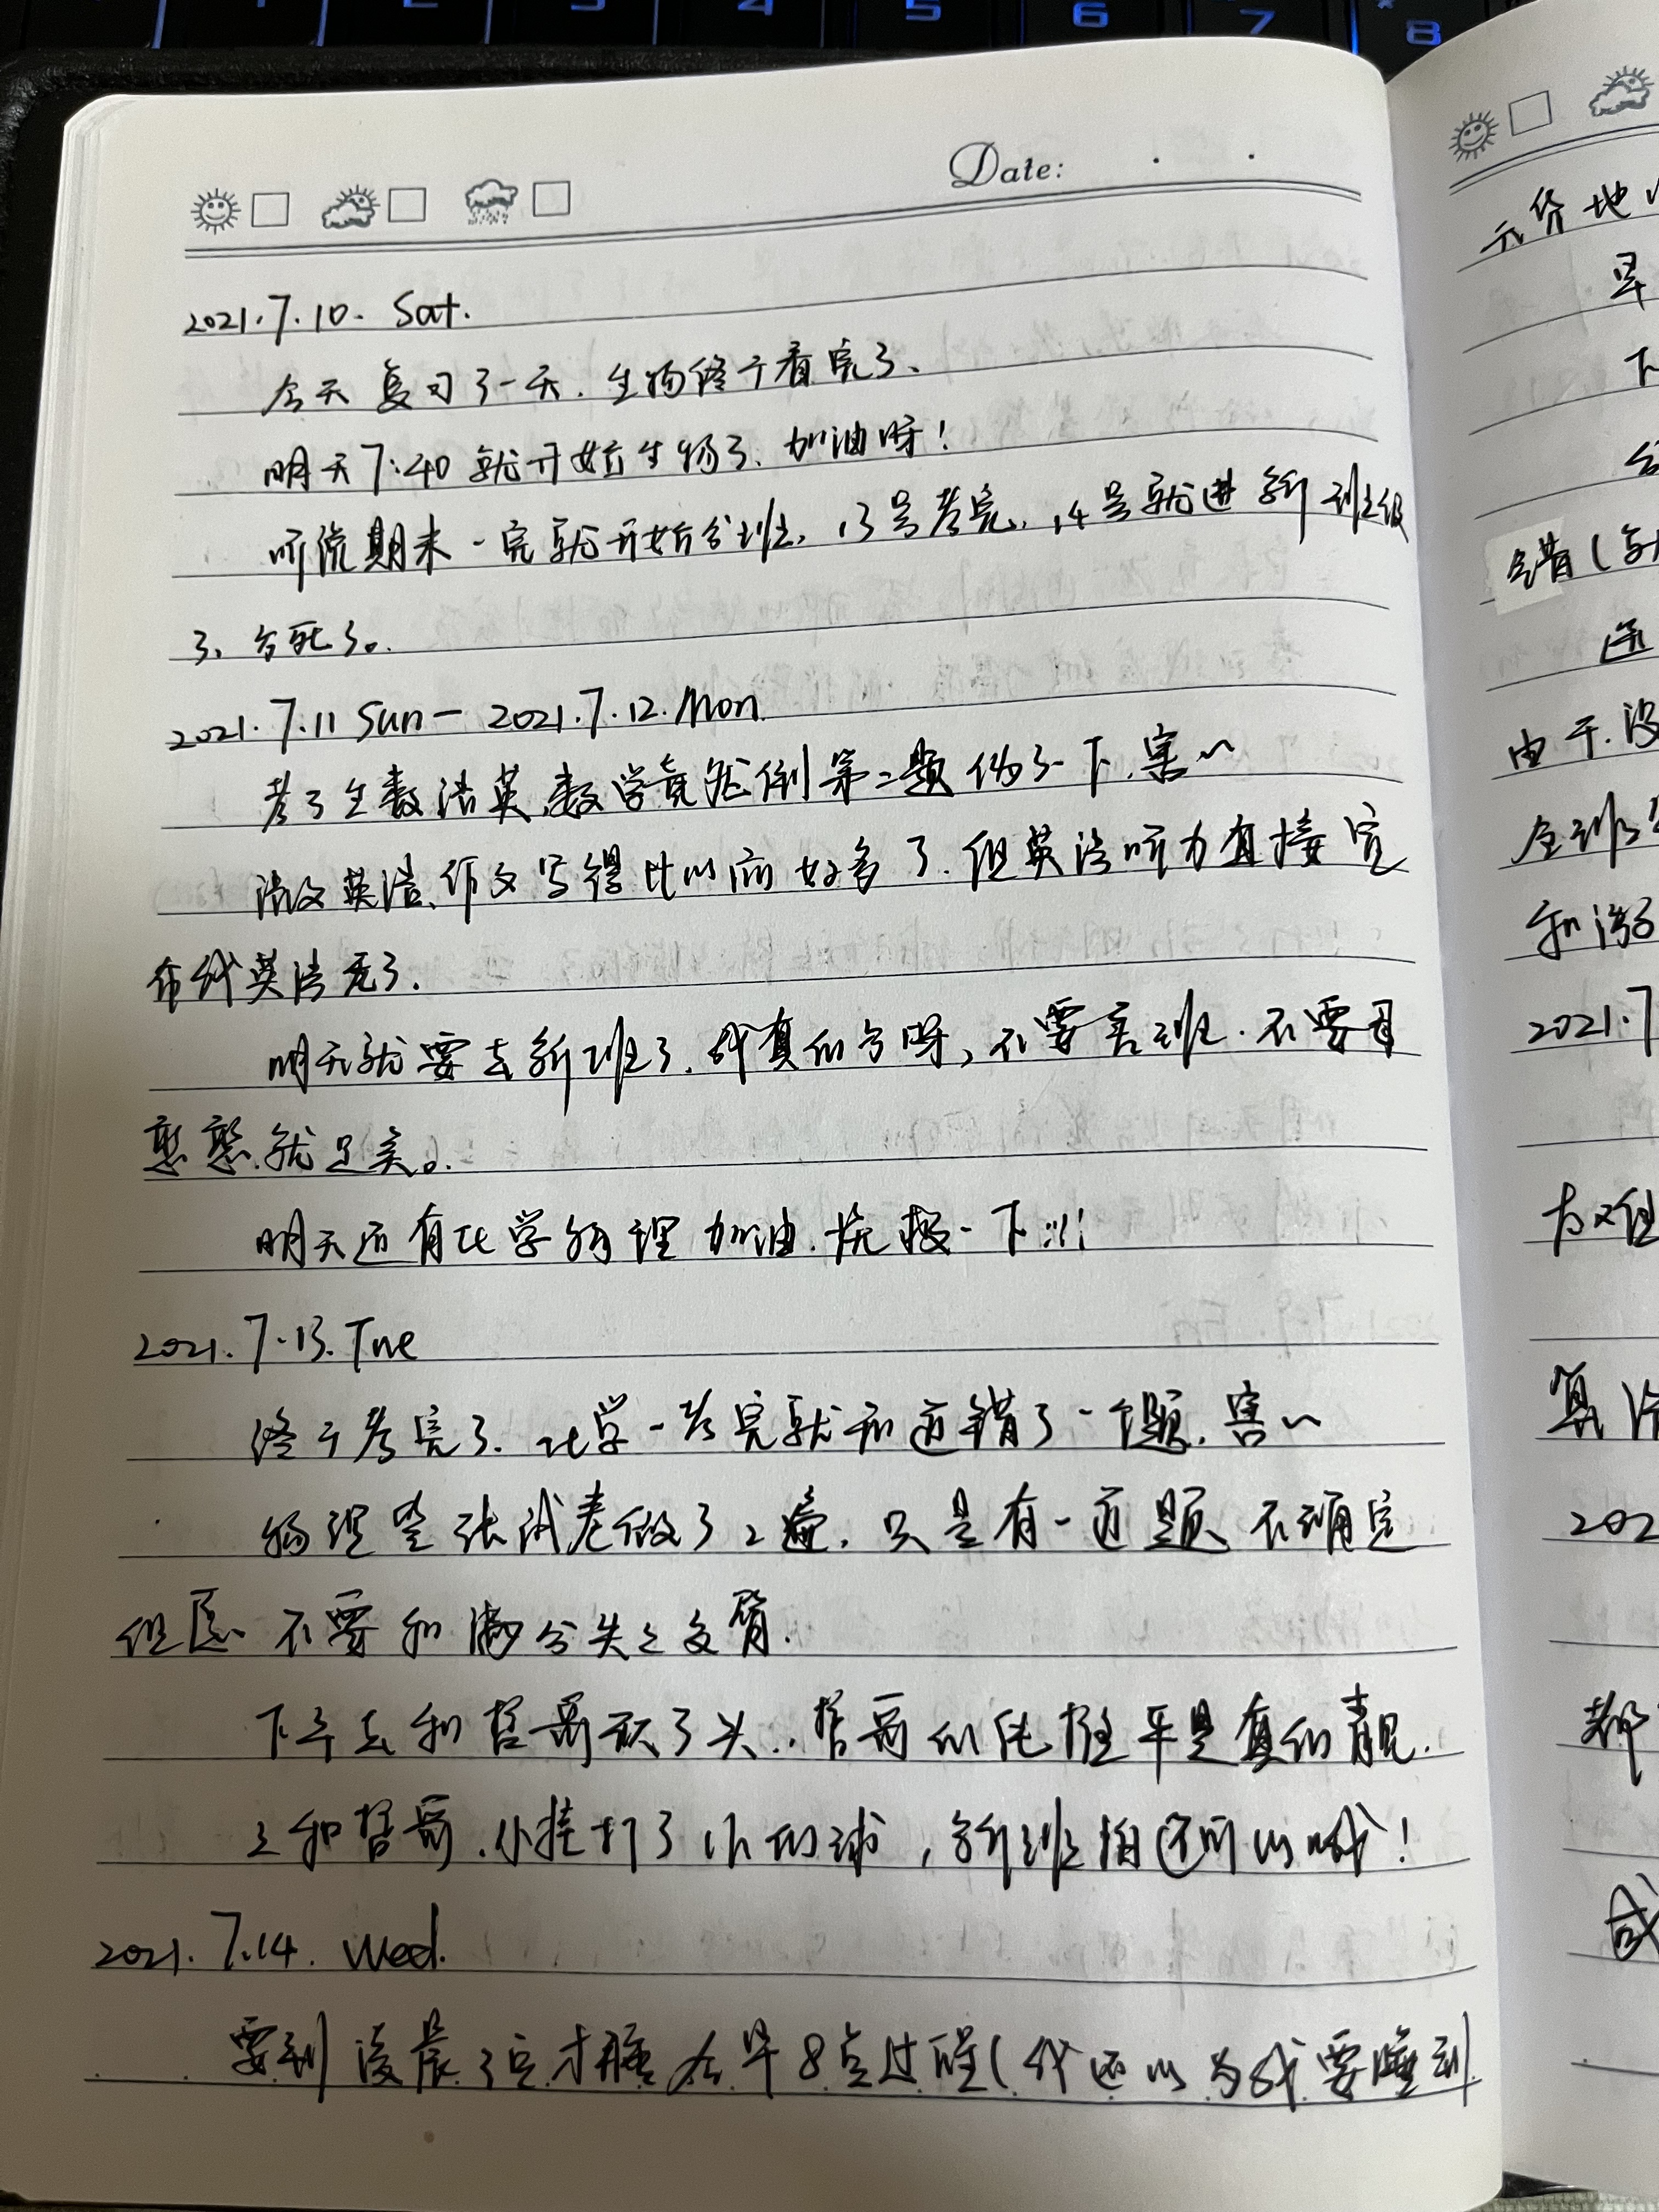 1 2 3 4 5 6 7 8
Date:
2021.7.10. Sat.
今天复习了一天.生物终于看完了、
明天7:40就开始生物了、加油呀!
听说期末一完就开始分班,13号考完,14号就进新班级
了、方死了。
2021.7.11 Sun — 2021.7.12.Mon.
考了生数语英,数学竟然倒第二题伤了一下.害~
语文英语、作文写得比以前好多了.但英语听力直接宣
布我英语无了.
明天就要去新班了.我真的方呀,不要害班.不要
憨憨.就足矣。
明天还有化学物理 加油.抚摸一下!!!
2021.7.13.Tue
终于考完了.化学一考完就知道错了一个题.害~
物理整张试卷做了2遍.只是有一道题不确定
但愿不要和满分失之交臂.
下午去和哲哥剪了头..哲哥的是真的靓.
又和哲哥.小桂打了1h的球,新班拍还可以哦!
2021.7.14.Wed.
要到凌晨3点才睡 在早8点过醒(我还以为我要睡到
元价地
早
下
错(
还
由于.没
全班
和
2021.7
为难
算
202
都
成